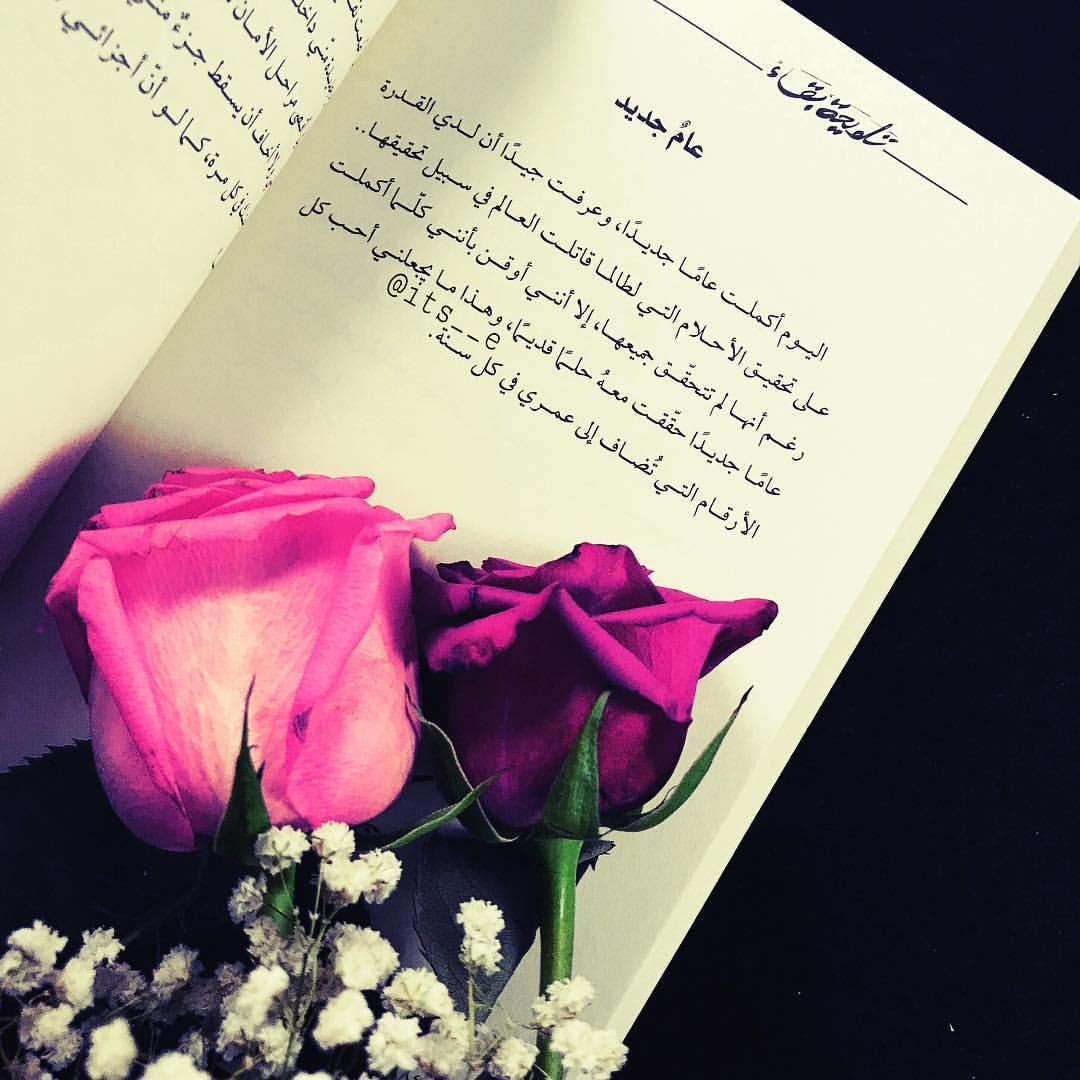 تلويحة بقاء
عامٌ جديد
اليوم أكملت عامًا جديدًا، وعرفت جيدًا أن لدي القدرة
على تحقيق الأحلام التي لطالما قاتلت العالم في سبيل تحقيقها..
رغم أنها لم تتحقّق جميعها، إلا أنني أوقن بأنني كلّما أكملت
عامًا جديدًا حقّقت معهُ حلمًا قديمًا، وهذا ما يجعلني أحب كل
الأرقام التي تُضاف إلى عمري في كل سنة.
@its__e
مراحل الأمان
أخاف أن يسقط جزءٌ
كل مرة، كما لو أنّ أجزائي